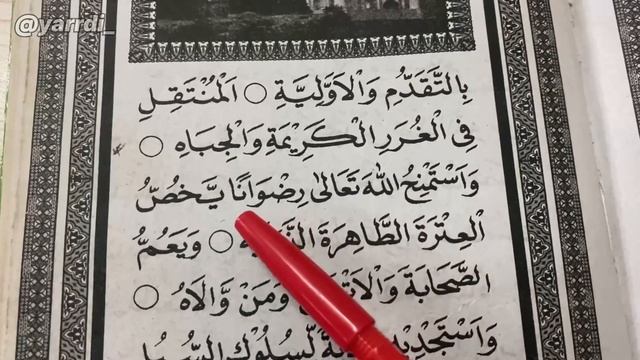 @yarrdi_
بِالتَّقَدُّمِ وَالْاَوَّلِيَّةِ ○ اَلْمُنْتَقِلِ
فِى الْغُرَرِ الْكَرِيْمَةِ وَالْجِبَاهِ ○
وَاَسْتَمْنِحُ اللهَ تَعَالىٰ رِضْوَانًا يَّخُصُّ
الْعِتْرَةَ الطَّاهِرَةَ ○ وَيَعُمُّ
الصَّحَابَةَ وَمَنْ وَّالَاهُ ○
لِّسُلُوْكِ